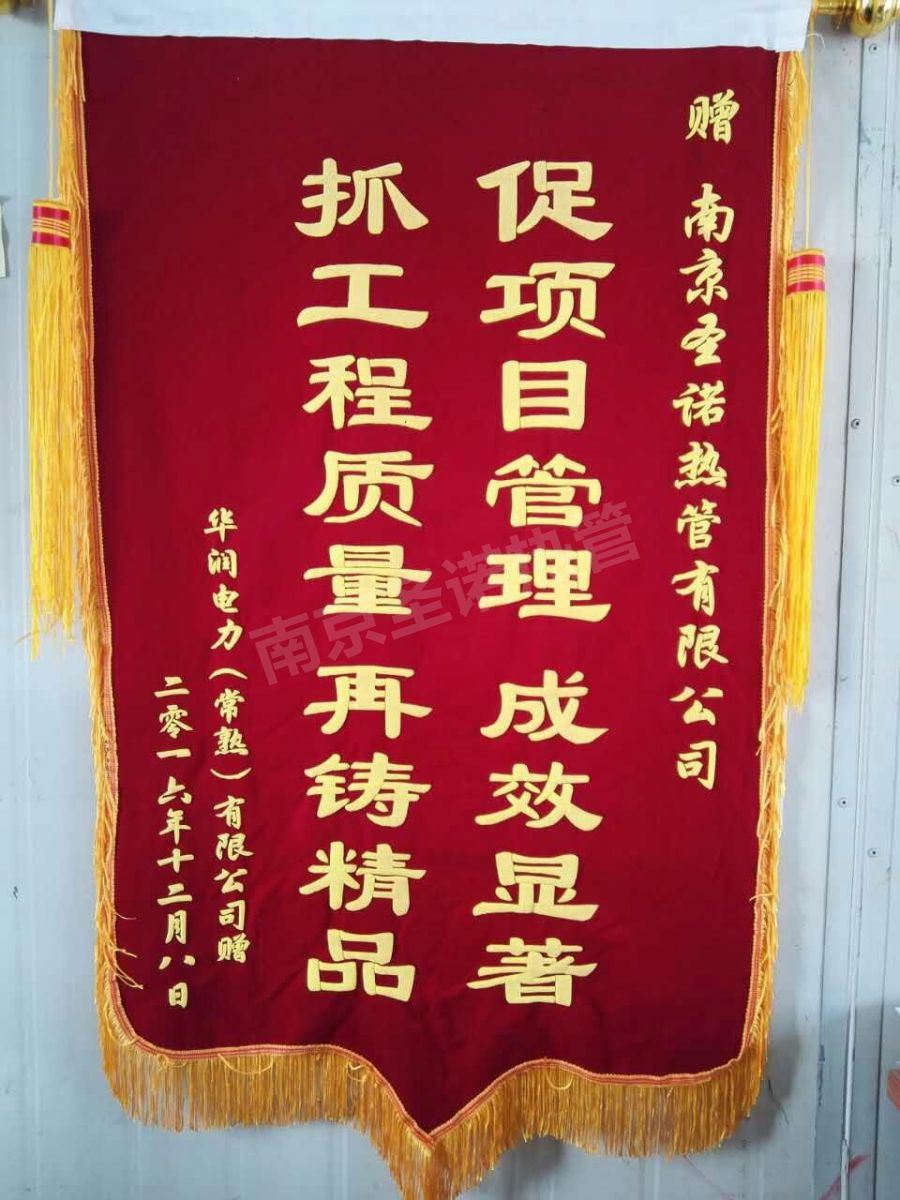 赠 南京圣诺热管有限公司
促项目管理 成效显著
抓工程质量 再铸精品
华润电力(常熟)有限公司赠
二零一六年十二月八日
南京圣诺热管